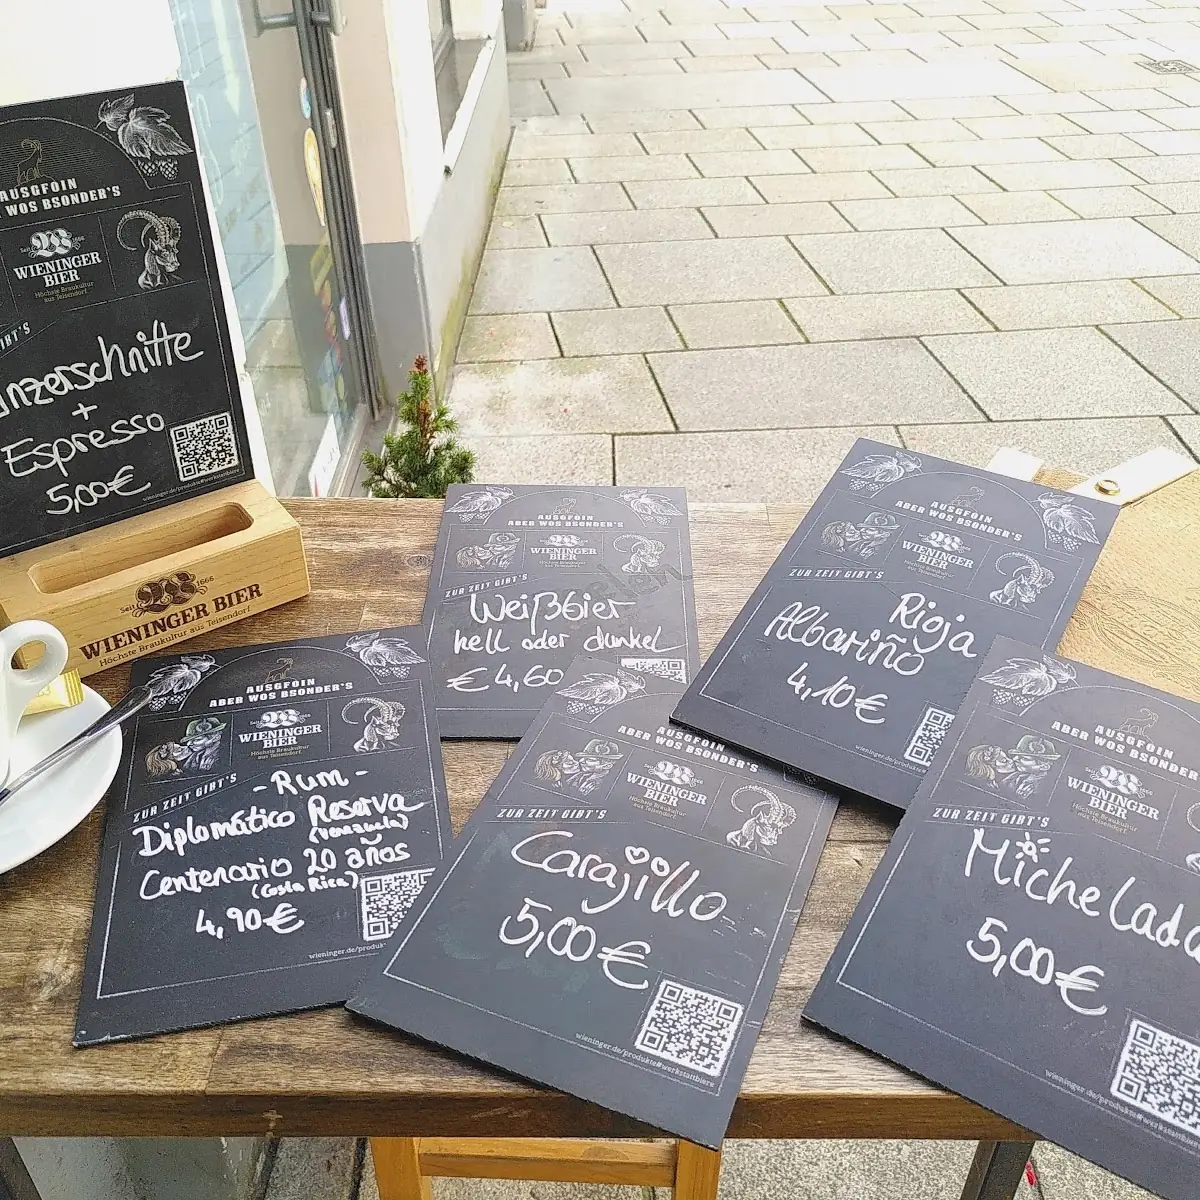 AUSGFOIN
WOS BSONDER'S
Seit 1666
WIENINGER BIER
Höchste Braukultur
aus Teisendorf
GIBT'S
+
Espresso
5,00€
wieninger.de/produkte#werkstattbiere
Seit 1666
WIENINGER BIER
Höchste Braukultur aus Teisendorf
AUSGFOIN
ABER WOS BSONDER'S
WIENINGER
BIER
Höchste Braukultur
aus Teisendorf
ZUR ZEIT GIBT'S
Weißbier
hell oder dunkel
€ 4,60
AUSGFOIN
ABER WOS BSONDER'S
WIENINGER
BIER
Höchste Braukultur
aus Teisendorf
ZUR ZEIT GIBT'S
Rioja
Albariño
4,10€
AUSGFOIN
ABER WOS BSONDER'S
Seit 1666
WIENINGER
BIER
Höchste Braukultur
aus Teisendorf
ZUR ZEIT GIBT'S
- Rum -
Diplomático Reserva
(Venezuela)
Centenario 20 años
(Costa Rica)
4,90€
AUSGFOIN
ABER WOS BSONDER'S
Seit 1666
WIENINGER
BIER
Höchste Braukultur
aus Teisendorf
ZUR ZEIT GIBT'S
Carajillo
5,00€
wieninger.de/produkte#werkstattbiere
AUSGFOIN
ABER WOS BSONDER'S
Seit 1666
WIENINGER
BIER
Höchste Braukultur
aus Teisendorf
ZUR ZEIT GIBT'S
Michelada
5,00€